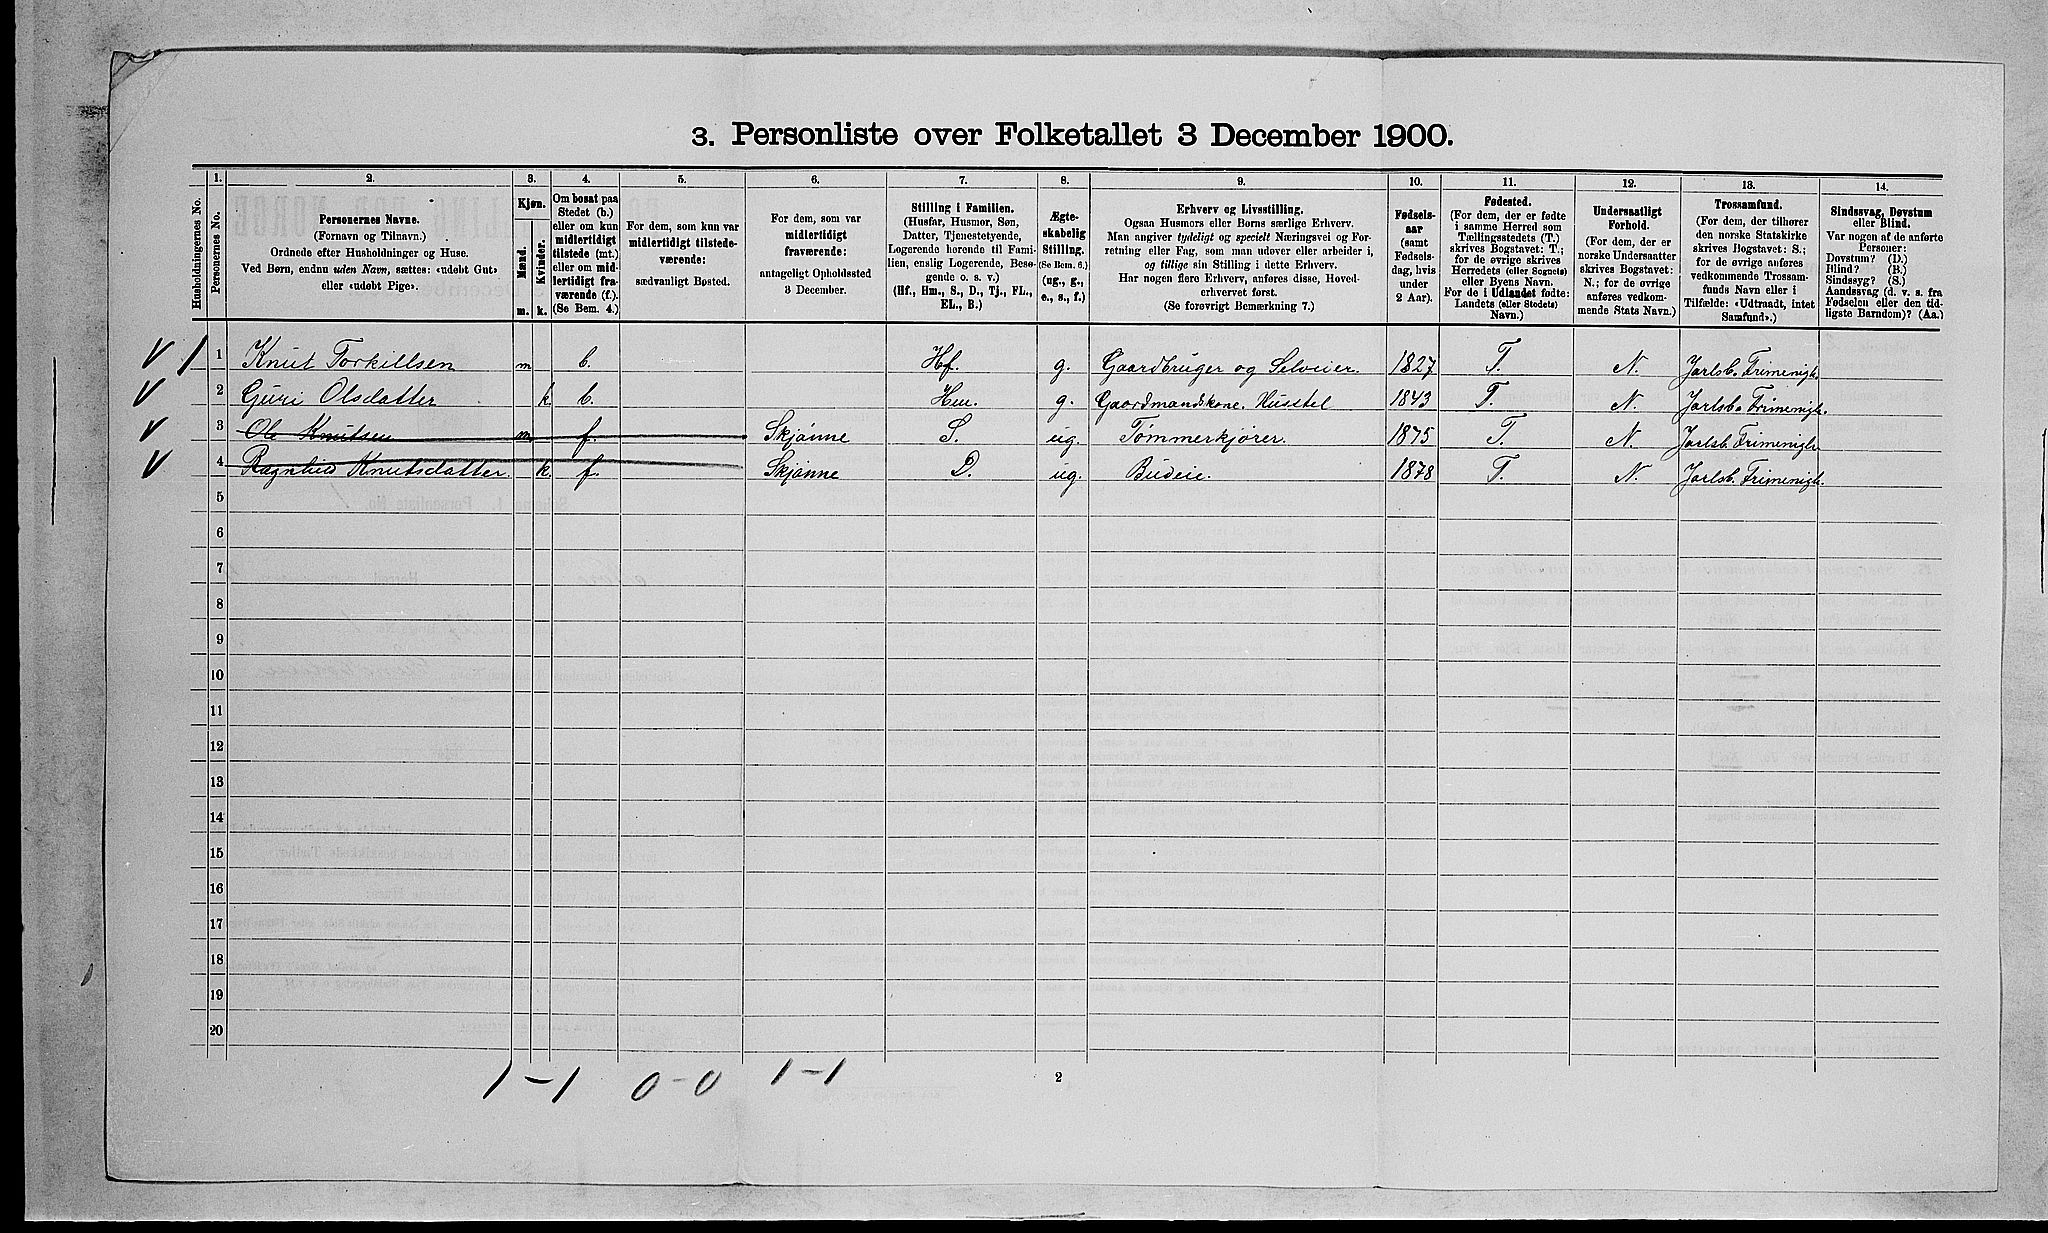 3. Personliste over Folketallet 3 December 1900.
1. 2. 3. 4. 5. 6. 7. 8. 9. 10. 11. 12. 13. 14.
Husholdningernes No.
Personernes No.
Personernes Navne.
(Fornavn og Tilnavn.)
Ordnede efter Husholdninger og Huse.
Ved Børn, endnu uden Navn, sættes: «udøbt Gut»
eller «udøbt Pige».
Kjøn.
Mænd.
Kvinder.
m. k.
Om bosat paa
Stedet (b.)
eller om kun
midlertidigt
tilstede (mt.)
eller om mid-
lertidigt fra-
værende (f.).
(Se Bem. 4.)
For dem, som kun var
midlertidigt tilstede-
værende:
sædvanligt Bosted.
For dem, som var
midlertidigt
fraværende:
antageligt Opholdssted
3 December.
Stilling i Familien.
(Husfar, Husmor, Søn,
Datter, Tjenestetyende,
Logerende hørende til Fami-
lien, enslig Logerende, Besø-
gende o. s. v.)
(Hf., Hm., S., D., Tj., FL.,
EL., B.)
Ægte-
skabelig
Stilling.
(Se Bem. 6.)
(ug., g.,
e., s., f.)
Erhverv og Livsstilling.
Ogsaa Husmors eller Børns særlige Erhverv.
Man angiver tydeligt og specielt Næringsvei og For-
retning eller Fag, som man udøver eller arbeider i,
og tillige sin Stilling i dette Erhverv.
Har nogen flere Erhverv, anføres disse, Hoved-
erhvervet først.
(Se forøvrigt Bemærkning 7.)
Fødsels-
aar
(samt
Fødsels-
dag, hvis
under
2 Aar).
Fødested.
(For dem, der er fødte
i samme Herred som
Tællingsstedets (T.)
skrives Bogstavet: T.;
for de øvrige skrives
Herredets (eller Sognets)
eller Byens Navn.
For de i Udlandet fødte:
Landets (eller Stedets)
Navn.)
Undersaatligt
Forhold.
(For dem, der er
norske Undersaatter
skrives Bogstavet:
N.; for de øvrige
anføres vedkom-
mende Stats Navn.)
Trossamfund.
(For dem, der tilhører
den norske Statskirke
skrives Bogstavet: S.;
for de øvrige anføres
vedkommende Trossam-
funds Navn eller i
Tilfælde: «Udtraadt, intet
Samfund».)
Sindssvag, Døvstum
eller Blind.
Var nogen af de anførte
Personer:
Døvstum? (D.)
Blind? (B.)
Sindssyg? (S.)
Aandssvag (d. v. s. fra
Fødselen eller den tid-
ligste Barndom)? (Aa.)
V 1 1 Knut Torkillsen m b. Hf. g. Gaardbruger og Selveier. 1827 T. N. Jarlsb. Frimenigh.
V 2 Guri Olsdatter k. b. Hm. g. Gaardmandskone. Husstel 1843 T. N. Jarlsb. Frimenigh.
V 3 Ole Knutsen m f. Skjønne S. ug. Tømmerkjører. 1875 T. N. Jarlsb. Frimenigh
V 4 Ragnhild Knutsdatter. k. f. Skjønne D. ug. Budeie. 1878 T. N. Jarlsb. Frimenigh.
5
6
7
8
9
10
11
12
13
14
15
16
17
18
19
20
1-1 0-0 1-1 2